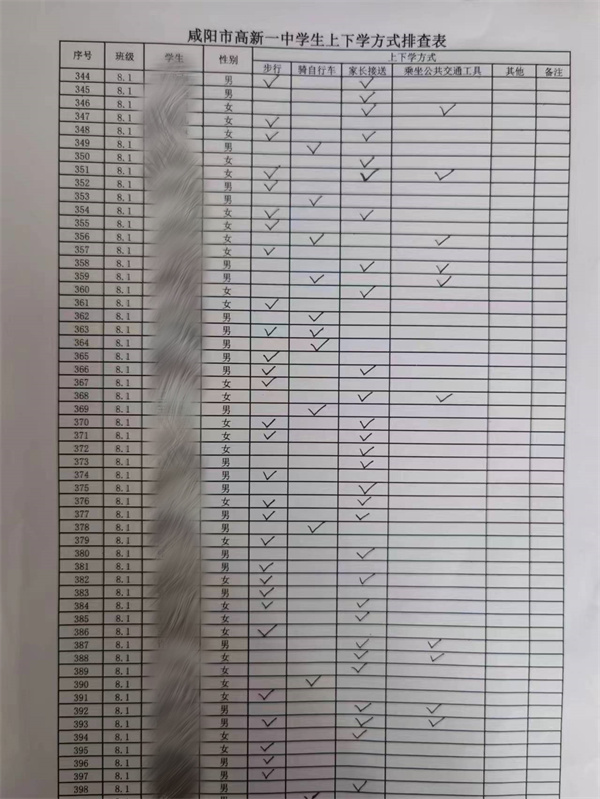 咸阳市高新一中学生上下学方式排查表
序号 班级 学生 性别 上下学方式
步行 骑自行车 家长接送 乘坐公共交通工具 其他 备注
344 8.1 男
345 8.1 男
346 8.1 女
347 8.1 女
348 8.1 女
349 8.1 男
350 8.1 女
351 8.1 女
352 8.1 男
353 8.1 男
354 8.1 女
355 8.1 女
356 8.1 女
357 8.1 女
358 8.1 男
359 8.1 男
360 8.1 女
361 8.1 女
362 8.1 男
363 8.1 男
364 8.1 男
365 8.1 男
366 8.1 男
367 8.1 女
368 8.1 女
369 8.1 男
370 8.1 女
371 8.1 女
372 8.1 女
373 8.1 男
374 8.1 男
375 8.1 男
376 8.1 女
377 8.1 男
378 8.1 男
379 8.1 女
380 8.1 男
381 8.1 男
382 8.1 女
383 8.1 男
384 8.1 女
385 8.1 女
386 8.1 女
387 8.1 男
388 8.1 女
389 8.1 女
390 8.1 女
391 8.1 女
392 8.1 男
393 8.1 男
394 8.1 女
395 8.1 女
396 8.1 男
397 8.1 男
398 8.1 男